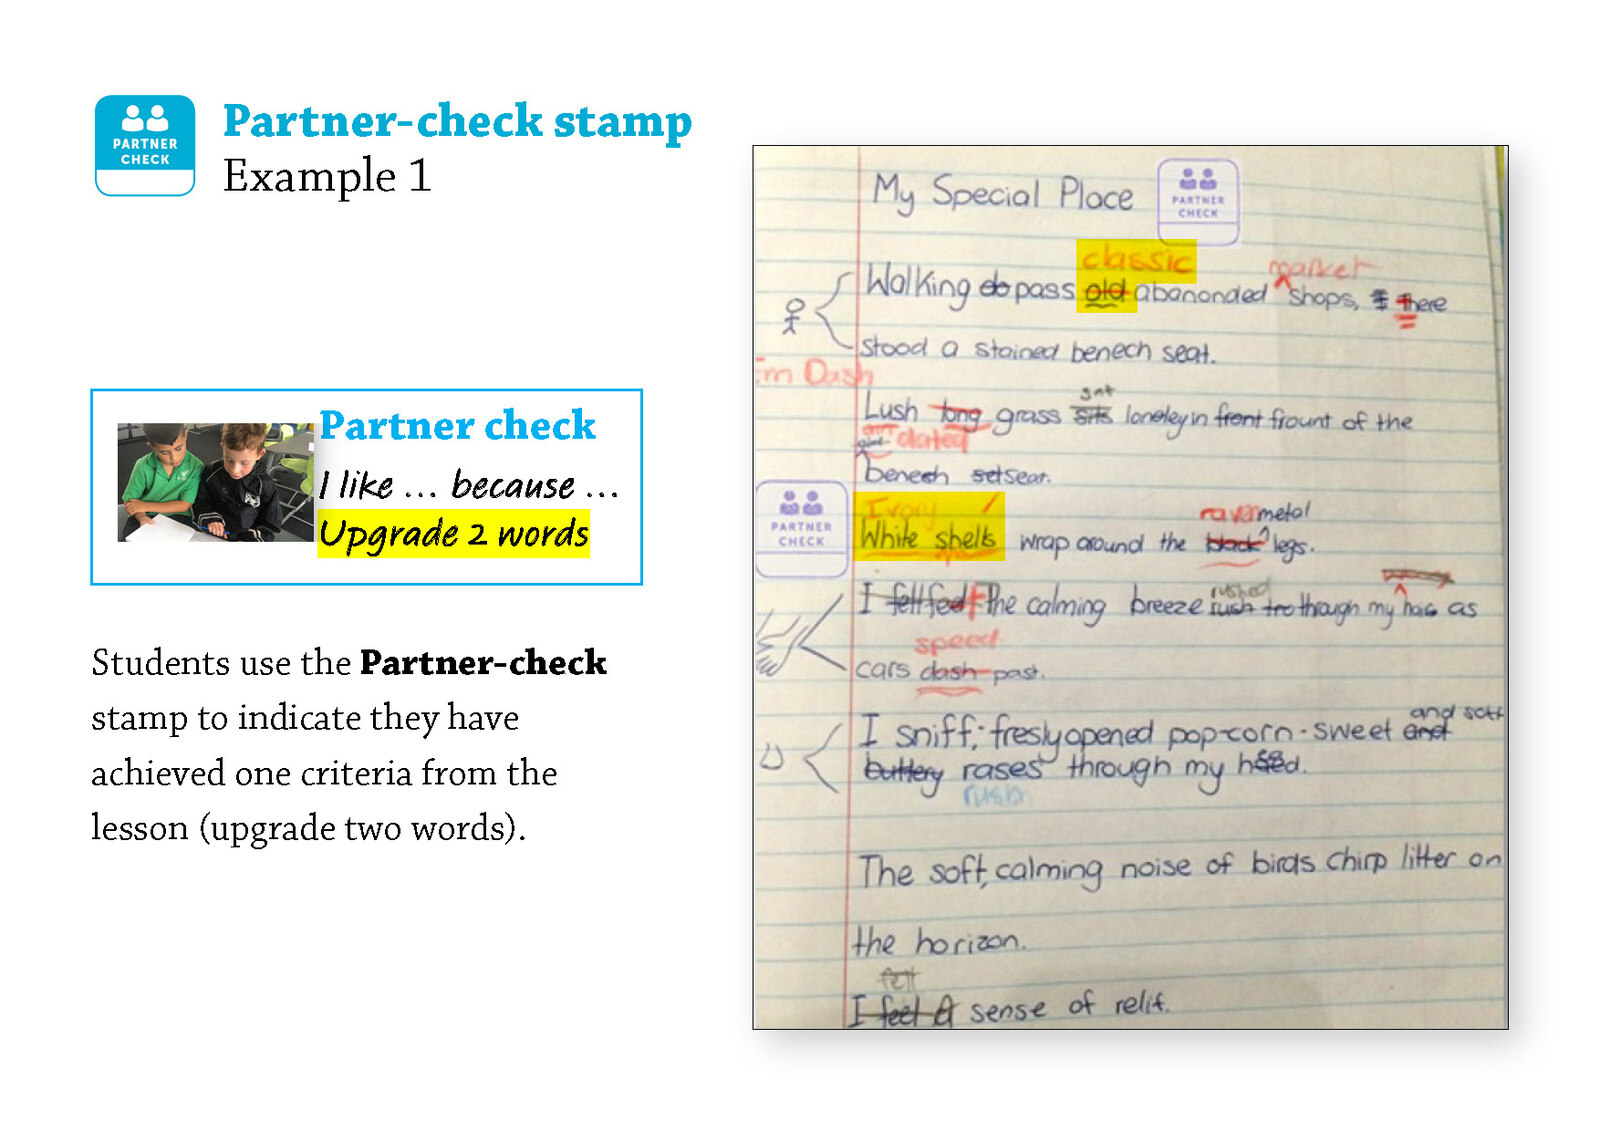 PARTNER
CHECK
Partner-check stamp
Example 1
Partner check
I like ... because ...
Upgrade 2 words
Students use the Partner-check
stamp to indicate they have
achieved one criteria from the
lesson (upgrade two words).
My Special Place
PARTNER
CHECK
classic
market
Walking do pass old abanonded shops, there
stood a stained benech seat.
Em Dash
sat
Lush long grass sits loneley in front frount of the
dated
benech set seat.
PARTNER
CHECK
Ivory
raven metal
White shells wrap around the black legs.
rushed
I felt feel The calming breeze rush tro through my hair as
speed
cars dash past.
and soft
I sniff; fresly opened pop-corn - sweet and
buttery rases through my head.
rush
The soft, calming noise of birds chirp litter on
the horizon.
felt
I feel A sense of relif.